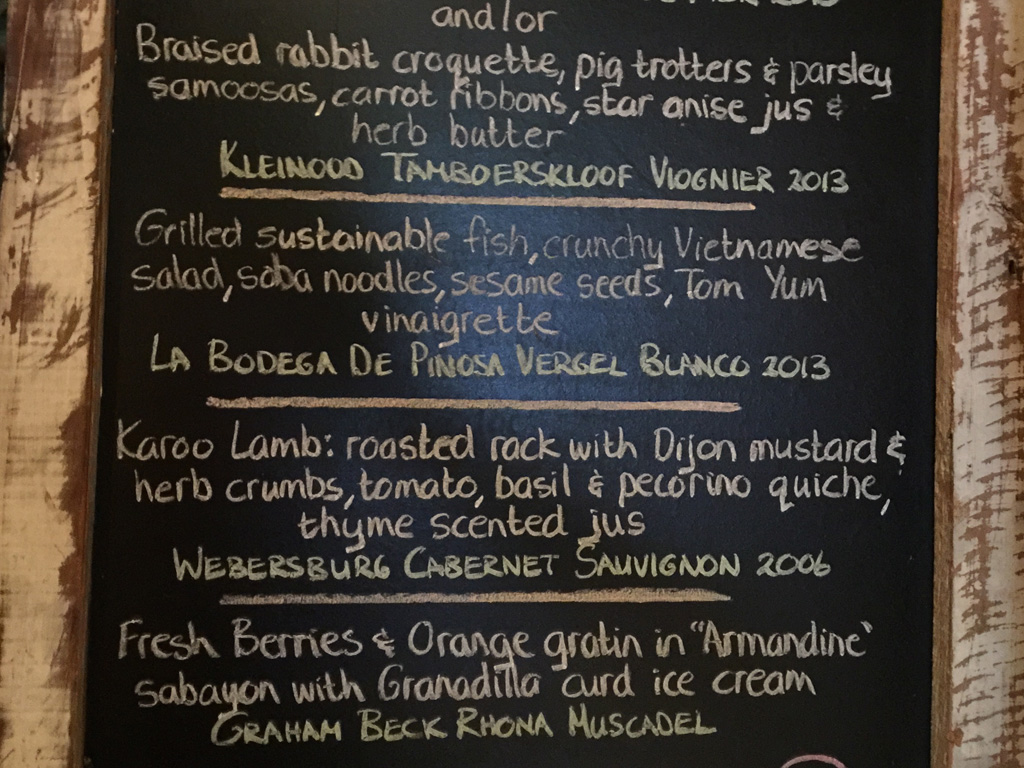 and/or
Braised rabbit croquette, pig trotters & parsley
samoosas, carrot ribbons, star anise jus &
herb butter
KLEINOOD TAMBOERSKLOOF VIOGNIER 2013
Grilled sustainable fish, crunchy Vietnamese
salad, soba noodles, sesame seeds, Tom Yum
vinaigrette
LA BODEGA DE PINOSA VERGEL BLANCO 2013
Karoo Lamb: roasted rack with Dijon mustard &
herb crumbs, tomato, basil & pecorino quiche,
thyme scented jus
WEBERSBURG CABERNET SAUVIGNON 2006
Fresh Berries & Orange gratin in "Armandine"
sabayon with Granadilla curd ice cream
GRAHAM BECK RHONA MUSCADEL